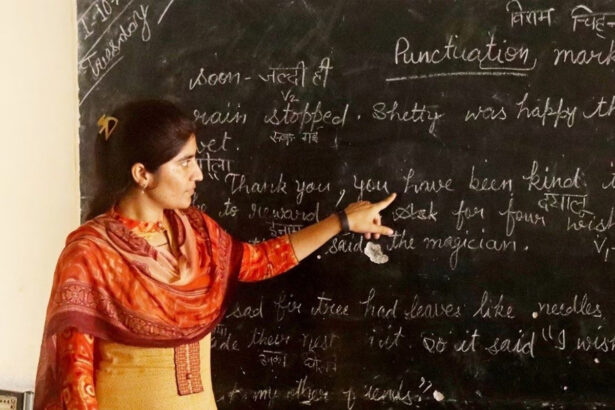 1-10-
Tuesday
विराम चिह्न-
Punctuation mark
soon - जल्दी ही
V2
rain stopped. Shetty was happy to
रुक गई
wet.
Thank you, you have been kind.
दयालु
to reward Ask for four wish
ईनाम
V1
said the magician.
sad fir tree had leaves like needles
their rest So it said "I wish
my other friends".